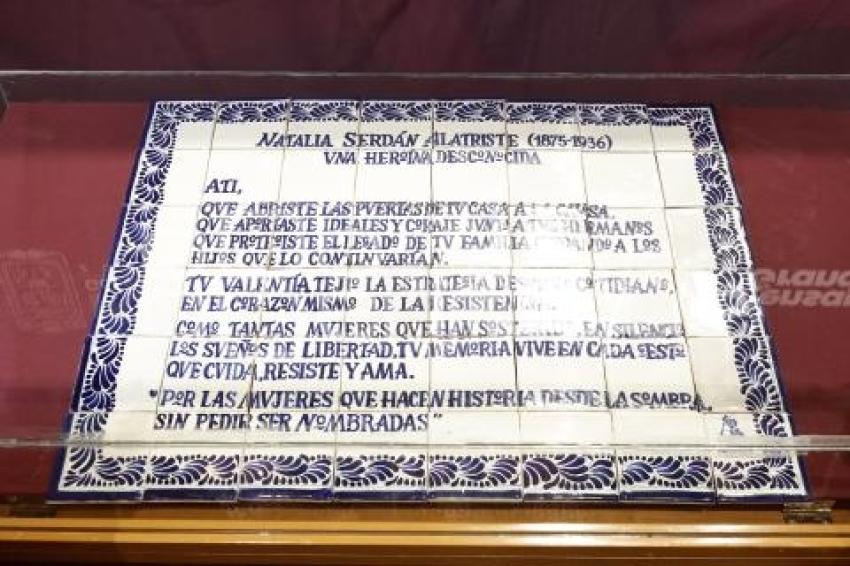 NATALIA SERDÁN ALATRISTE (1875-1936)
VNA HEROÍNA DESCONOCIDA
A TI,
QVE ABRISTE LAS PVERTAS DE TV CASA A LA CAVSA.
QVE APORTASTE IDEALES Y CORAJE JVNTO A TVS HERMANOS
QVE PROTEGISTE EL LEGADO DE TV FAMILIA A LOS
HIJOS QVE LO CONTINVARÍAN.
TV VALENTÍA TEJIÓ LA ESTRATEGIA DESDE LO COTIDIANO,
EN EL CORAZÓN MISMO DE LA RESISTENCIA.
COMO TANTAS MVJERES QVE HAN SOSTENIDO, EN SILENCIO
LOS SVEÑOS DE LIBERTAD, TV MEMORIA VIVE EN CADA GESTO
QVE CVIDA, RESISTE Y AMA.
"POR LAS MVJERES QVE HACEN HISTORIA DESDE LA SOMBRA,
SIN PEDIR SER NOMBRADAS"